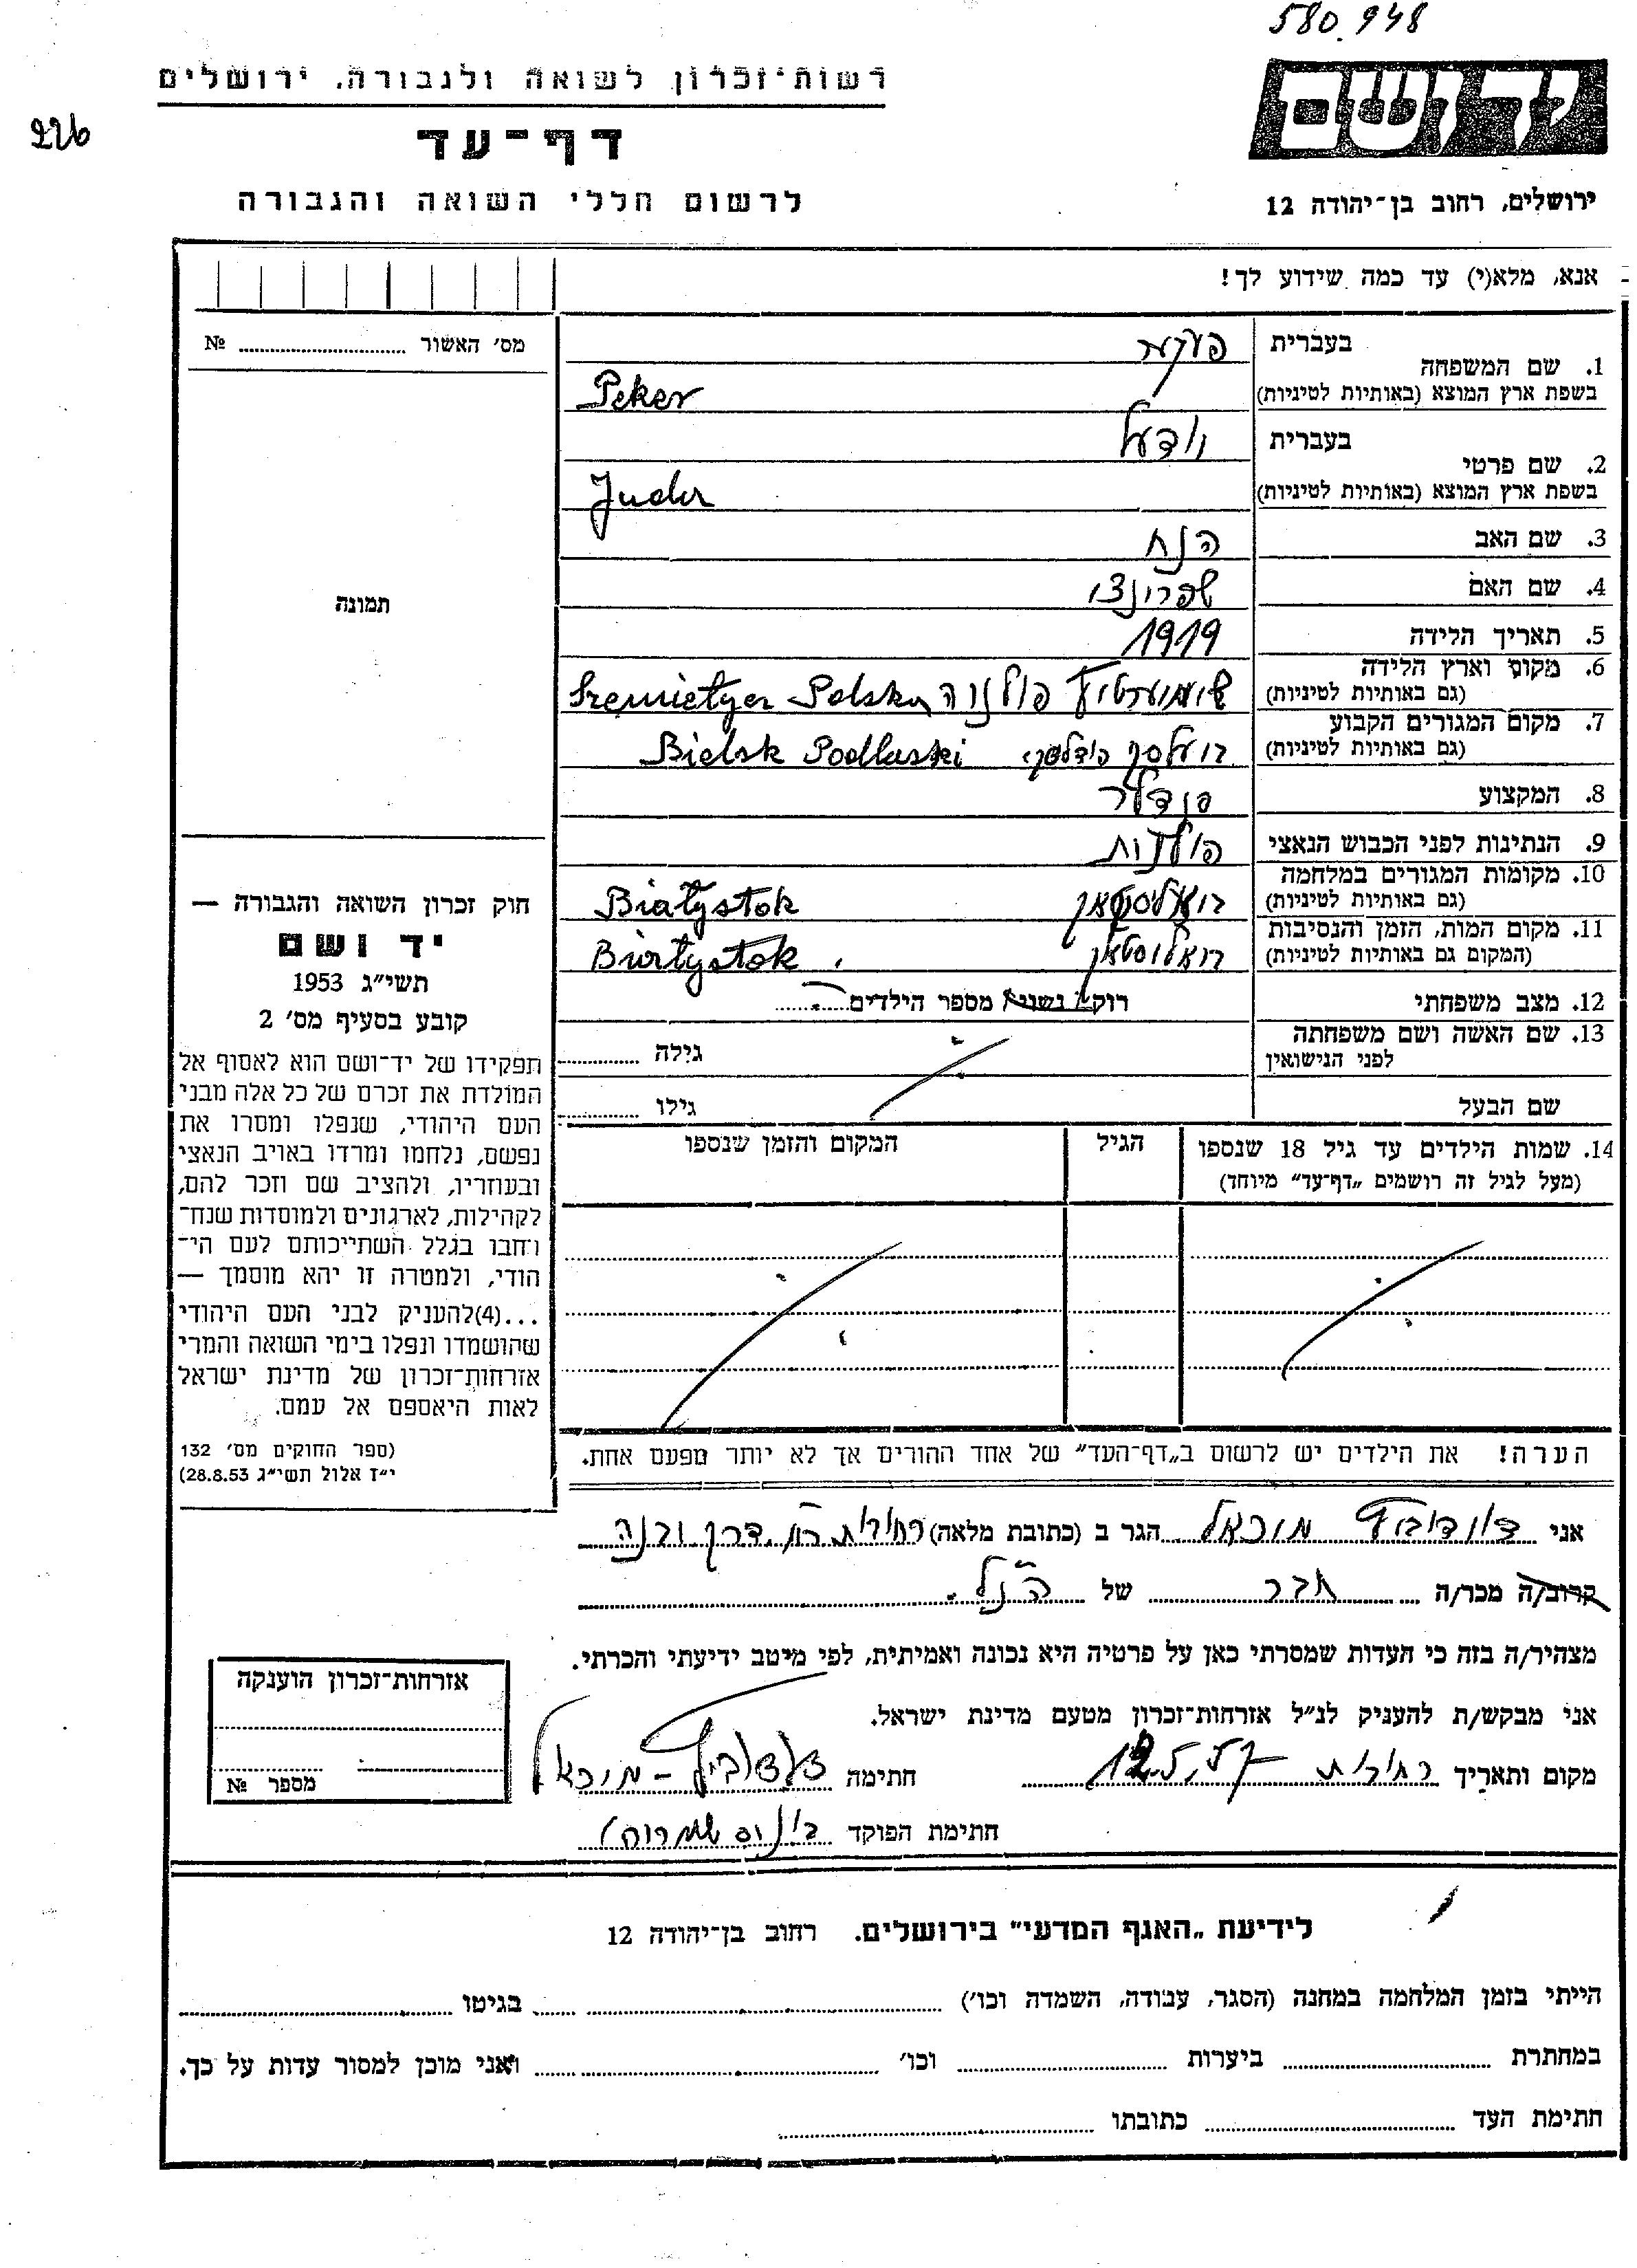 580.948
רשות־זכרון לשואה ולגבורה, ירושלים
יד ושם
דף־עד
לרשום חללי השואה והגבורה
ירושלים, רחוב בן־יהודה 12
אנא, מלא(י) עד כמה שידוע לך!
מס' האשור № 
בעברית
1. שם המשפחה
בשפת ארץ המוצא (באותיות לטיניות) Peker
בעברית
2. שם פרטי
בשפת ארץ המוצא (באותיות לטיניות)
3. שם האב הנח
4. שם האם
5. תאריך הלידה 1919
6. מקום וארץ הלידה
(גם באותיות לטיניות) פולניה
7. מקום המגורים הקבוע
(גם באותיות לטיניות) Bielsk Podlaski
8. המקצוע
9. הנתינות לפני הכבוש הנאצי פולנית
10. מקומות המגורים במלחמה
(גם באותיות לטיניות) Białystok
11. מקום המות, הזמן והנסיבות
(המקום גם באותיות לטיניות) Białystok
12. מצב משפחתי רוק נשוי מספר הילדים
13. שם האשה ושם משפחתה
לפני הנישואין גילה
שם הבעל גילו
14. שמות הילדים עד גיל 18 שנספו הגיל המקום והזמן שנספו
(מעל לגיל זה רושמים „דף־עד" מיוחד)
הערה! את הילדים יש לרשום ב„דף־העד" של אחד ההורים אך לא יותר מפעם אחת.
תמונה
חוק זכרון השואה והגבורה —
יד ושם
תשי"ג 1953
קובע בסעיף מס' 2
תפקידו של יד־ושם הוא לאסוף אל
המולדת את זכרם של כל אלה מבני
העם היהודי, שנפלו ומסרו את
נפשם, נלחמו ומרדו באויב הנאצי
ובעוזריו, ולהציב שם וזכר להם,
לקהילות, לארגונים ולמוסדות שנח־
רבו בגלל השתייכותם לעם הי־
הודי, ולמטרה זו יהא מוסמך —
...(4)להעניק לבני העם היהודי
שהושמדו ונפלו בימי השואה והמרי
אזרחות־זכרון של מדינת ישראל
לאות היאספם אל עמם.
(ספר החוקים מס' 132
י"ז אלול תשי"ג 28.8.53)
אני מיכאל הגר ב (כתובת מלאה) רחובות דרך יבנה
קרוב/ה מכר/ה חבר של הנ"ל.
מצהיר/ה בזה כי העדות שמסרתי כאן על פרטיה היא נכונה ואמיתית, לפי מיטב ידיעתי והכרתי.
אני מבקש/ת להעניק לנ"ל אזרחות־זכרון מטעם מדינת ישראל.
מקום ותאריך רחובות חתימה מיכאל
חתימת הפוקד
אזרחות־זכרון הוענקה
מספר №
לידיעת „האגף המדעי" בירושלים. רחוב בן־יהודה 12
הייתי בזמן המלחמה במחנה (הסגר, עבודה, השמדה וכו') בגיטו
במחתרת ביערות וכו' ואני מוכן למסור עדות על כך.
חתימת העד כתובתו